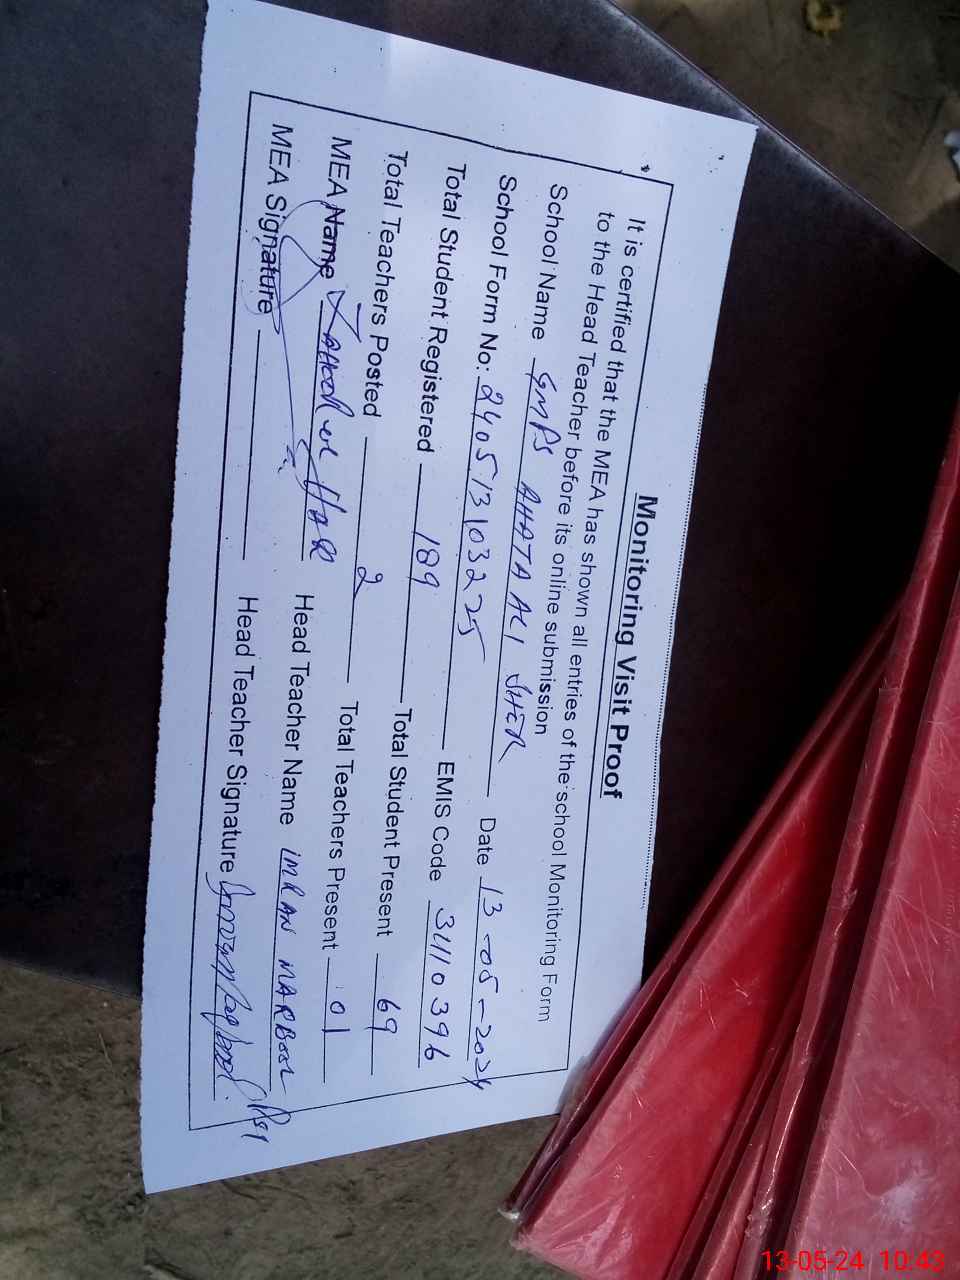 Monitoring Visit Proof
It is certified that the MEA has shown all entries of the school Monitoring Form
to the Head Teacher before its online submission
School Name GMPS AHATA ALI SHER Date 13-05-2024
School Form No: 240513103225 EMIS Code 31110396
Total Student Registered 189 Total Student Present 69
Total Teachers Posted 2 Total Teachers Present 01
MEA Name Head Teacher Name IMRAN MAQBOOL
MEA Signature Head Teacher Signature
13-05-24 10:43